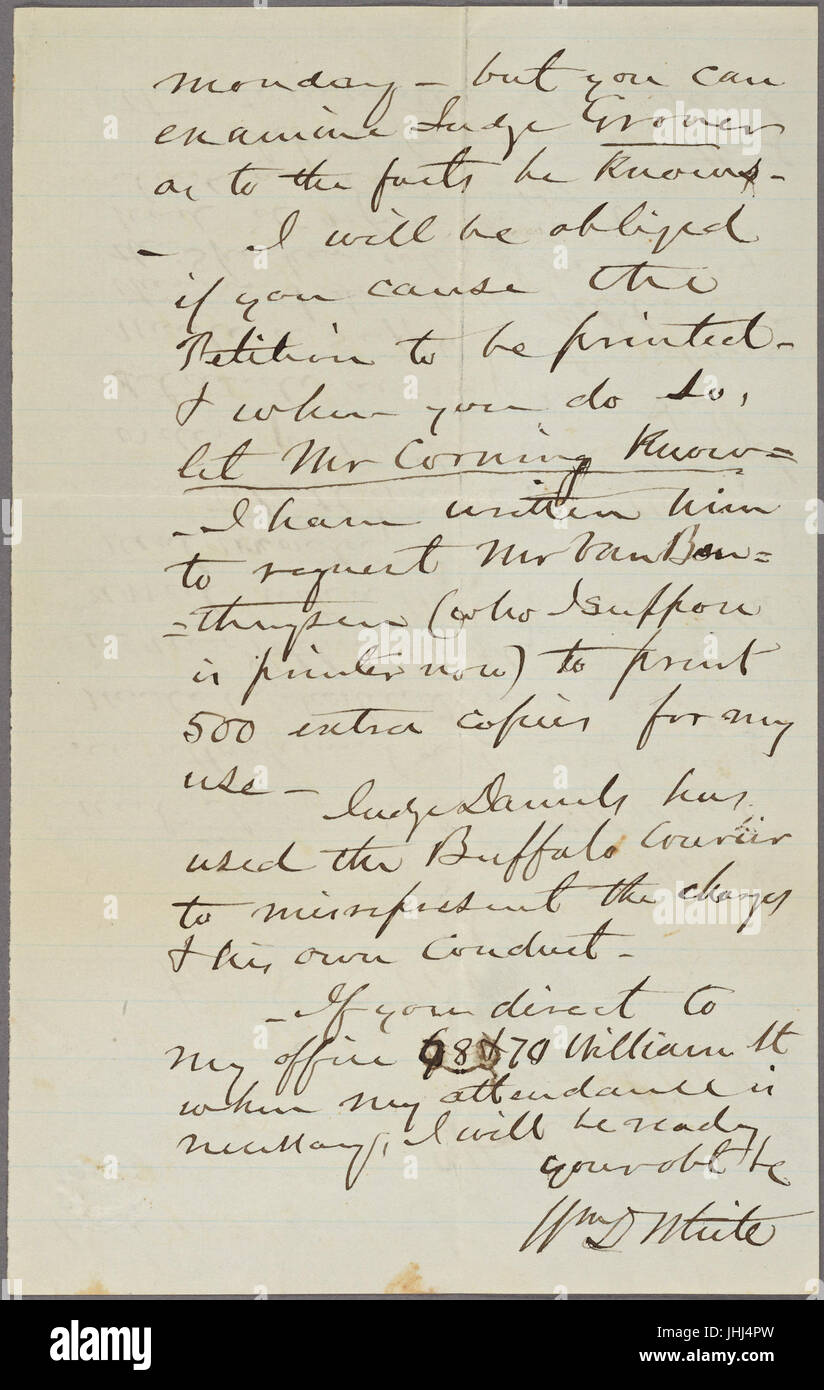 monday – but you can
examine Judge Grover
as to the facts he knows –
– I will be obliged
if you cause the
Petition to be printed –
& when you do so,
let Mr Corning know –
– I have written him
to request Mr Van Ben=
=thuysen (who I suppose
is printer now) to print
500 extra copies for my
use –
Judge Daniels has
used the Buffalo Courier
to misrepresent the charges
& his own conduct –
– If you direct to
my office 68 & 70 William St
when my attendance is
necessary, I will be ready
your obt
Wm D White
alamy
alamy stock photo
JHJ4PW
www.alamy.com